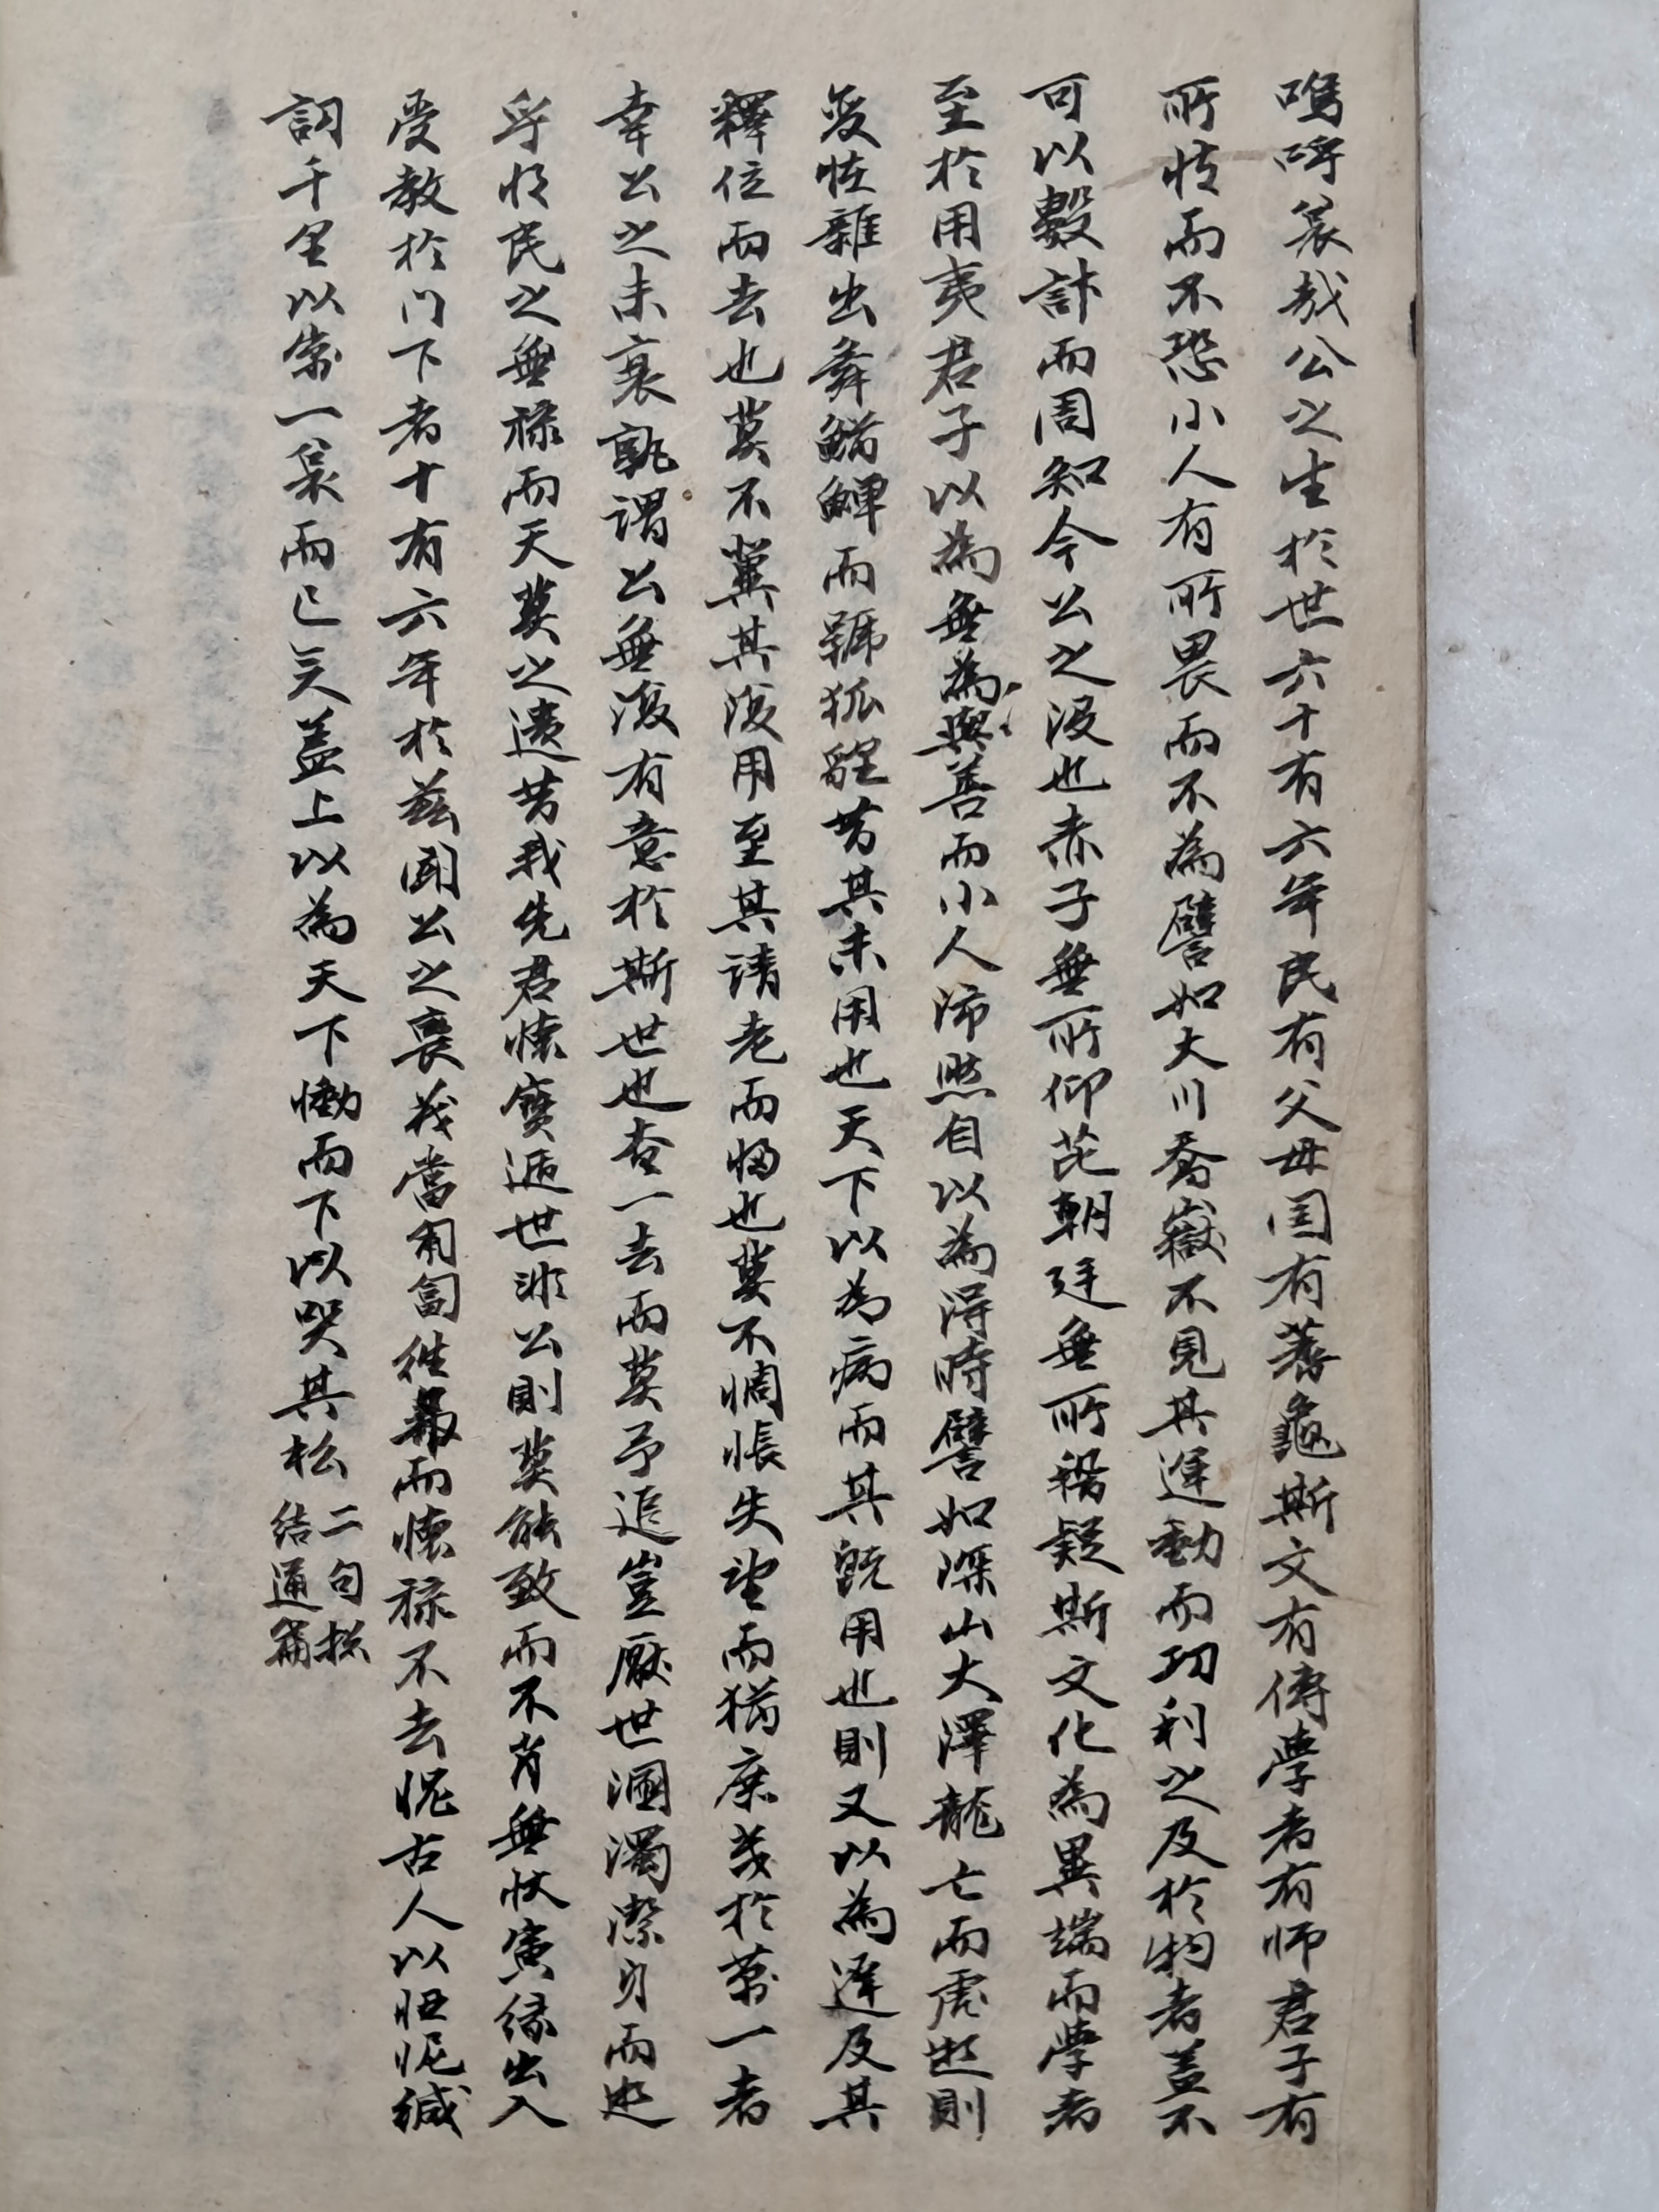 嗚呼哀哉公之生於世六十有六年民有父母国有蓍龜斯文有傳學者有師君子有
所恃而不恐小人有所畏而不為譬如大川喬嶽不見其運動而功利之及於物者盖不
可以數計而周知今公之没也赤子無所仰芘朝廷無所稽疑斯文化為異端而學者
至於用夷君子以為無為與善而小人沛然自以為得時譬如深山大澤龍亡而虎逝則
変怪雜出舞鰌鱓而號狐貍昔其未用也天下以為病而其既用也則又以為遲及其
釋位而去也莫不冀其復用至其請老而歸也莫不惆悵失望而猶庶幾於萬一者
幸公之未衰孰謂公無復有意於斯世也奄一去而莫予追豈厭世溷濁潔身而逝
乎將民之無禄而天莫之遺昔我先君懷寳遁世非公則莫能致而不肖無状夤緣出入
受教於门下者十有六年於兹聞公之喪義當匍匐往弔而懷禄不去愧古人以忸怩緘
詞千里以寓一哀而已矣盖上以為天下慟而下以哭其私
二句總
結通篇